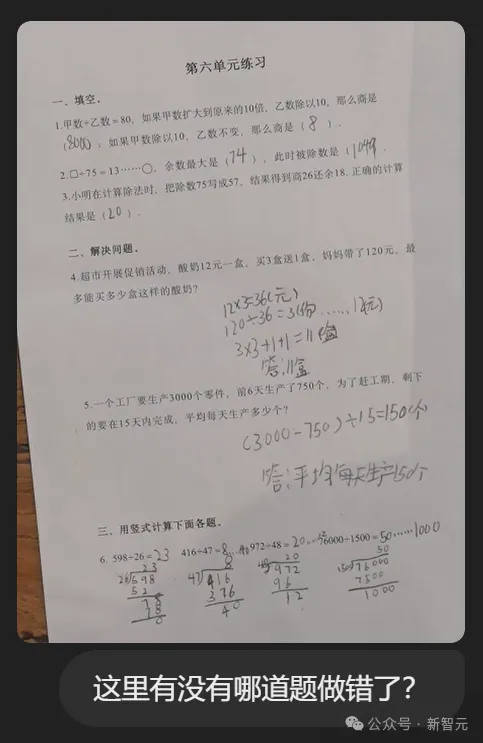 第六单元练习
一、填空。
1.甲数÷乙数=80，如果甲数扩大到原来的10倍，乙数除以10，那么商是
（8000），如果甲数除以10，乙数不变，那么商是（ 8 ）.
2.□÷75＝13……○，余数最大是（ 74 ），此时被除数是（1049.
3.小明在计算除法时，把除数75写成57，结果得到商26还余18. 正确的计算
结果是（ 20 ）.
二、解决问题。
4.超市开展促销活动，酸奶12元一盒，买3盒送1盒，妈妈带了120元，最
多能买多少盒这样的酸奶？
12×3=36(元)
120÷36=3(份)……12(元)
3×3+1+1=11(盒)
答:11盒
5.一个工厂要生产3000个零件，前6天生产了750个，为了赶工期，剩下
的要在15天内完成，平均每天生产多少个？
(3000-750)÷15=150个
答:平均每天生产150个
三、用竖式计算下面各题。
6. 598÷26=23 416÷47=8……40 972÷48=20……12 76000÷1500=50……1000
23 8 20 50
26 598 47 416 48 972 150 76000
52 376 96 7500
78 40 12 1000
78
0
这里有没有哪道题做错了？
公众号·新智元